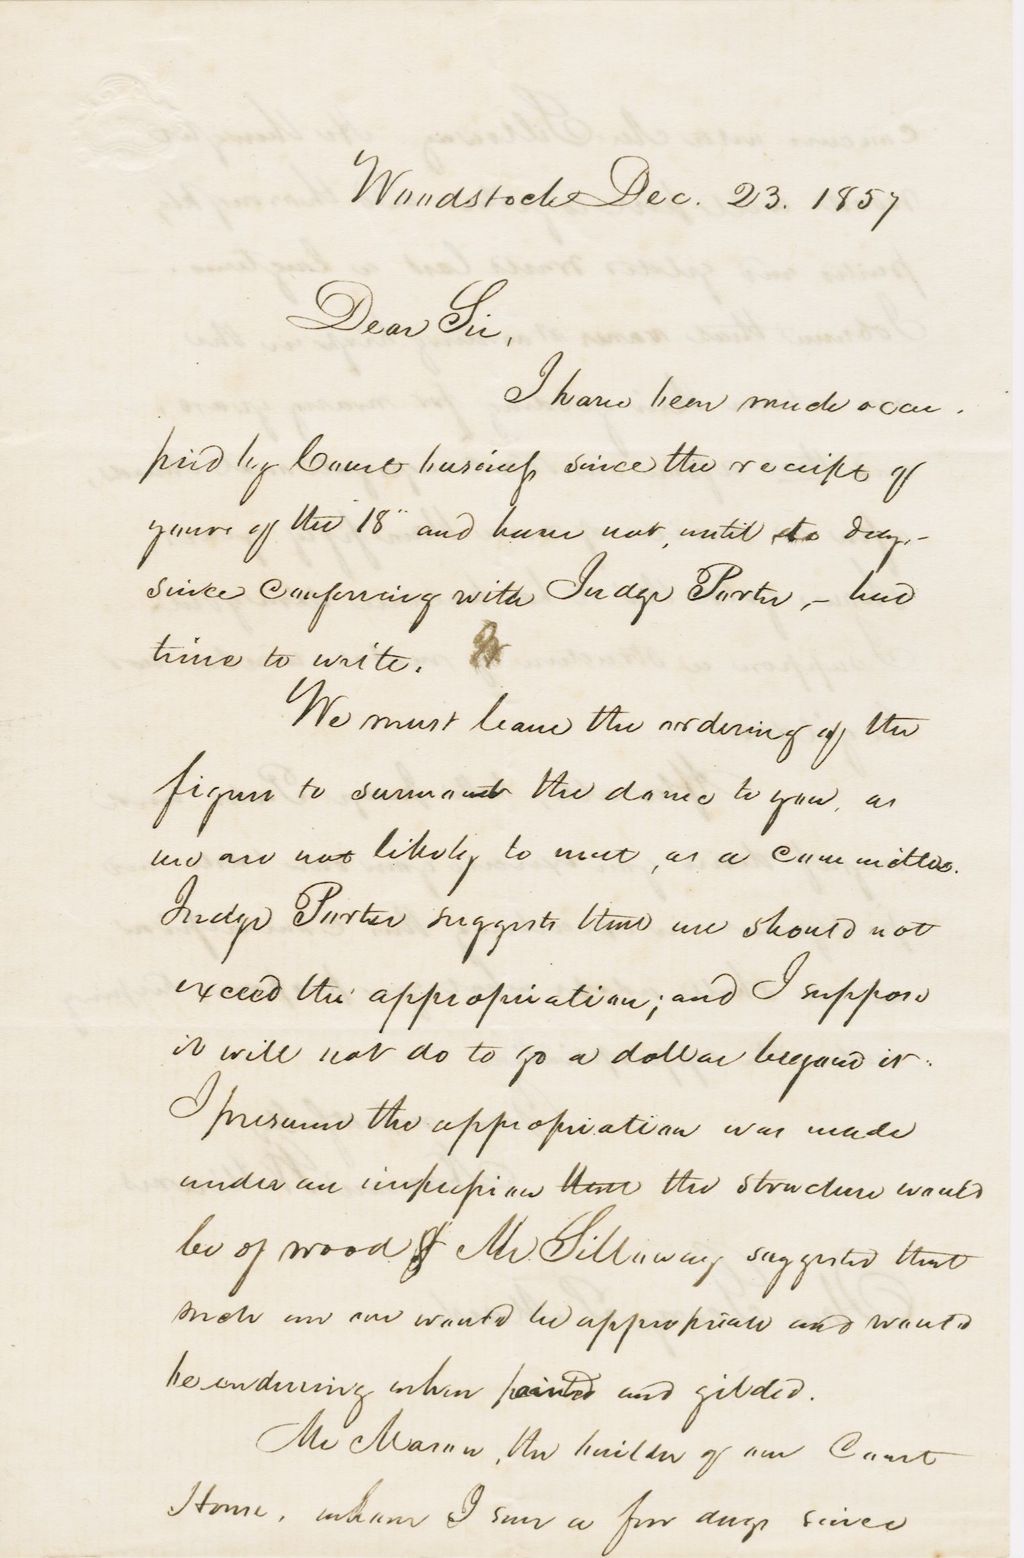 Woodstock Dec. 23. 1857
Dear Sir,
I have been much occu-
pied by Court business since the receipt of
yours of the 18" and have not, until to day,-
since conferring with Judge Porter,- had
time to write.
We must leave the ordering of the
figure to surmount the dome to you, as
we are not likely to meet, as a committee.
Judge Porter suggests that we should not
exceed the appropriation; and I suppose
it will not do to go a dollar beyond it.
I presume the appropriation was made
under an impression that the structure would
be of wood & Mr. Sillaway suggested that
such an one would be appropriate and would
be enduring when painted and gilded.
Mr Mason, the builder of our Court
House, whom I saw a few days since